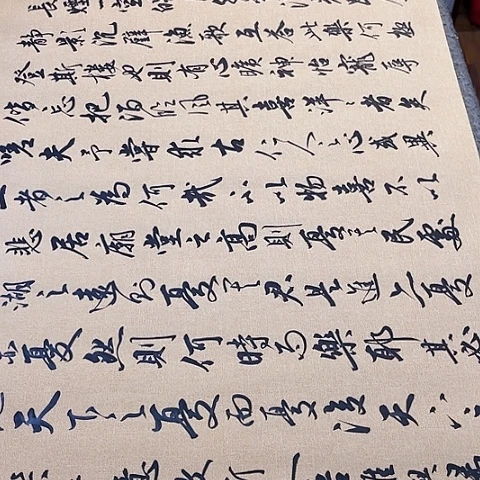 長煙一空
靜影沉璧漁歌互答此樂何極
登斯樓也則有心曠神怡寵辱
偕忘把酒臨風其喜洋〻者矣
嗟夫予嘗求古仁人之心或異
二者之為何哉不以物喜不以
悲居廟堂之高則憂其民處
湖之遠則憂其君是進亦憂
憂然則何時而樂耶其必
天下之憂而憂後天